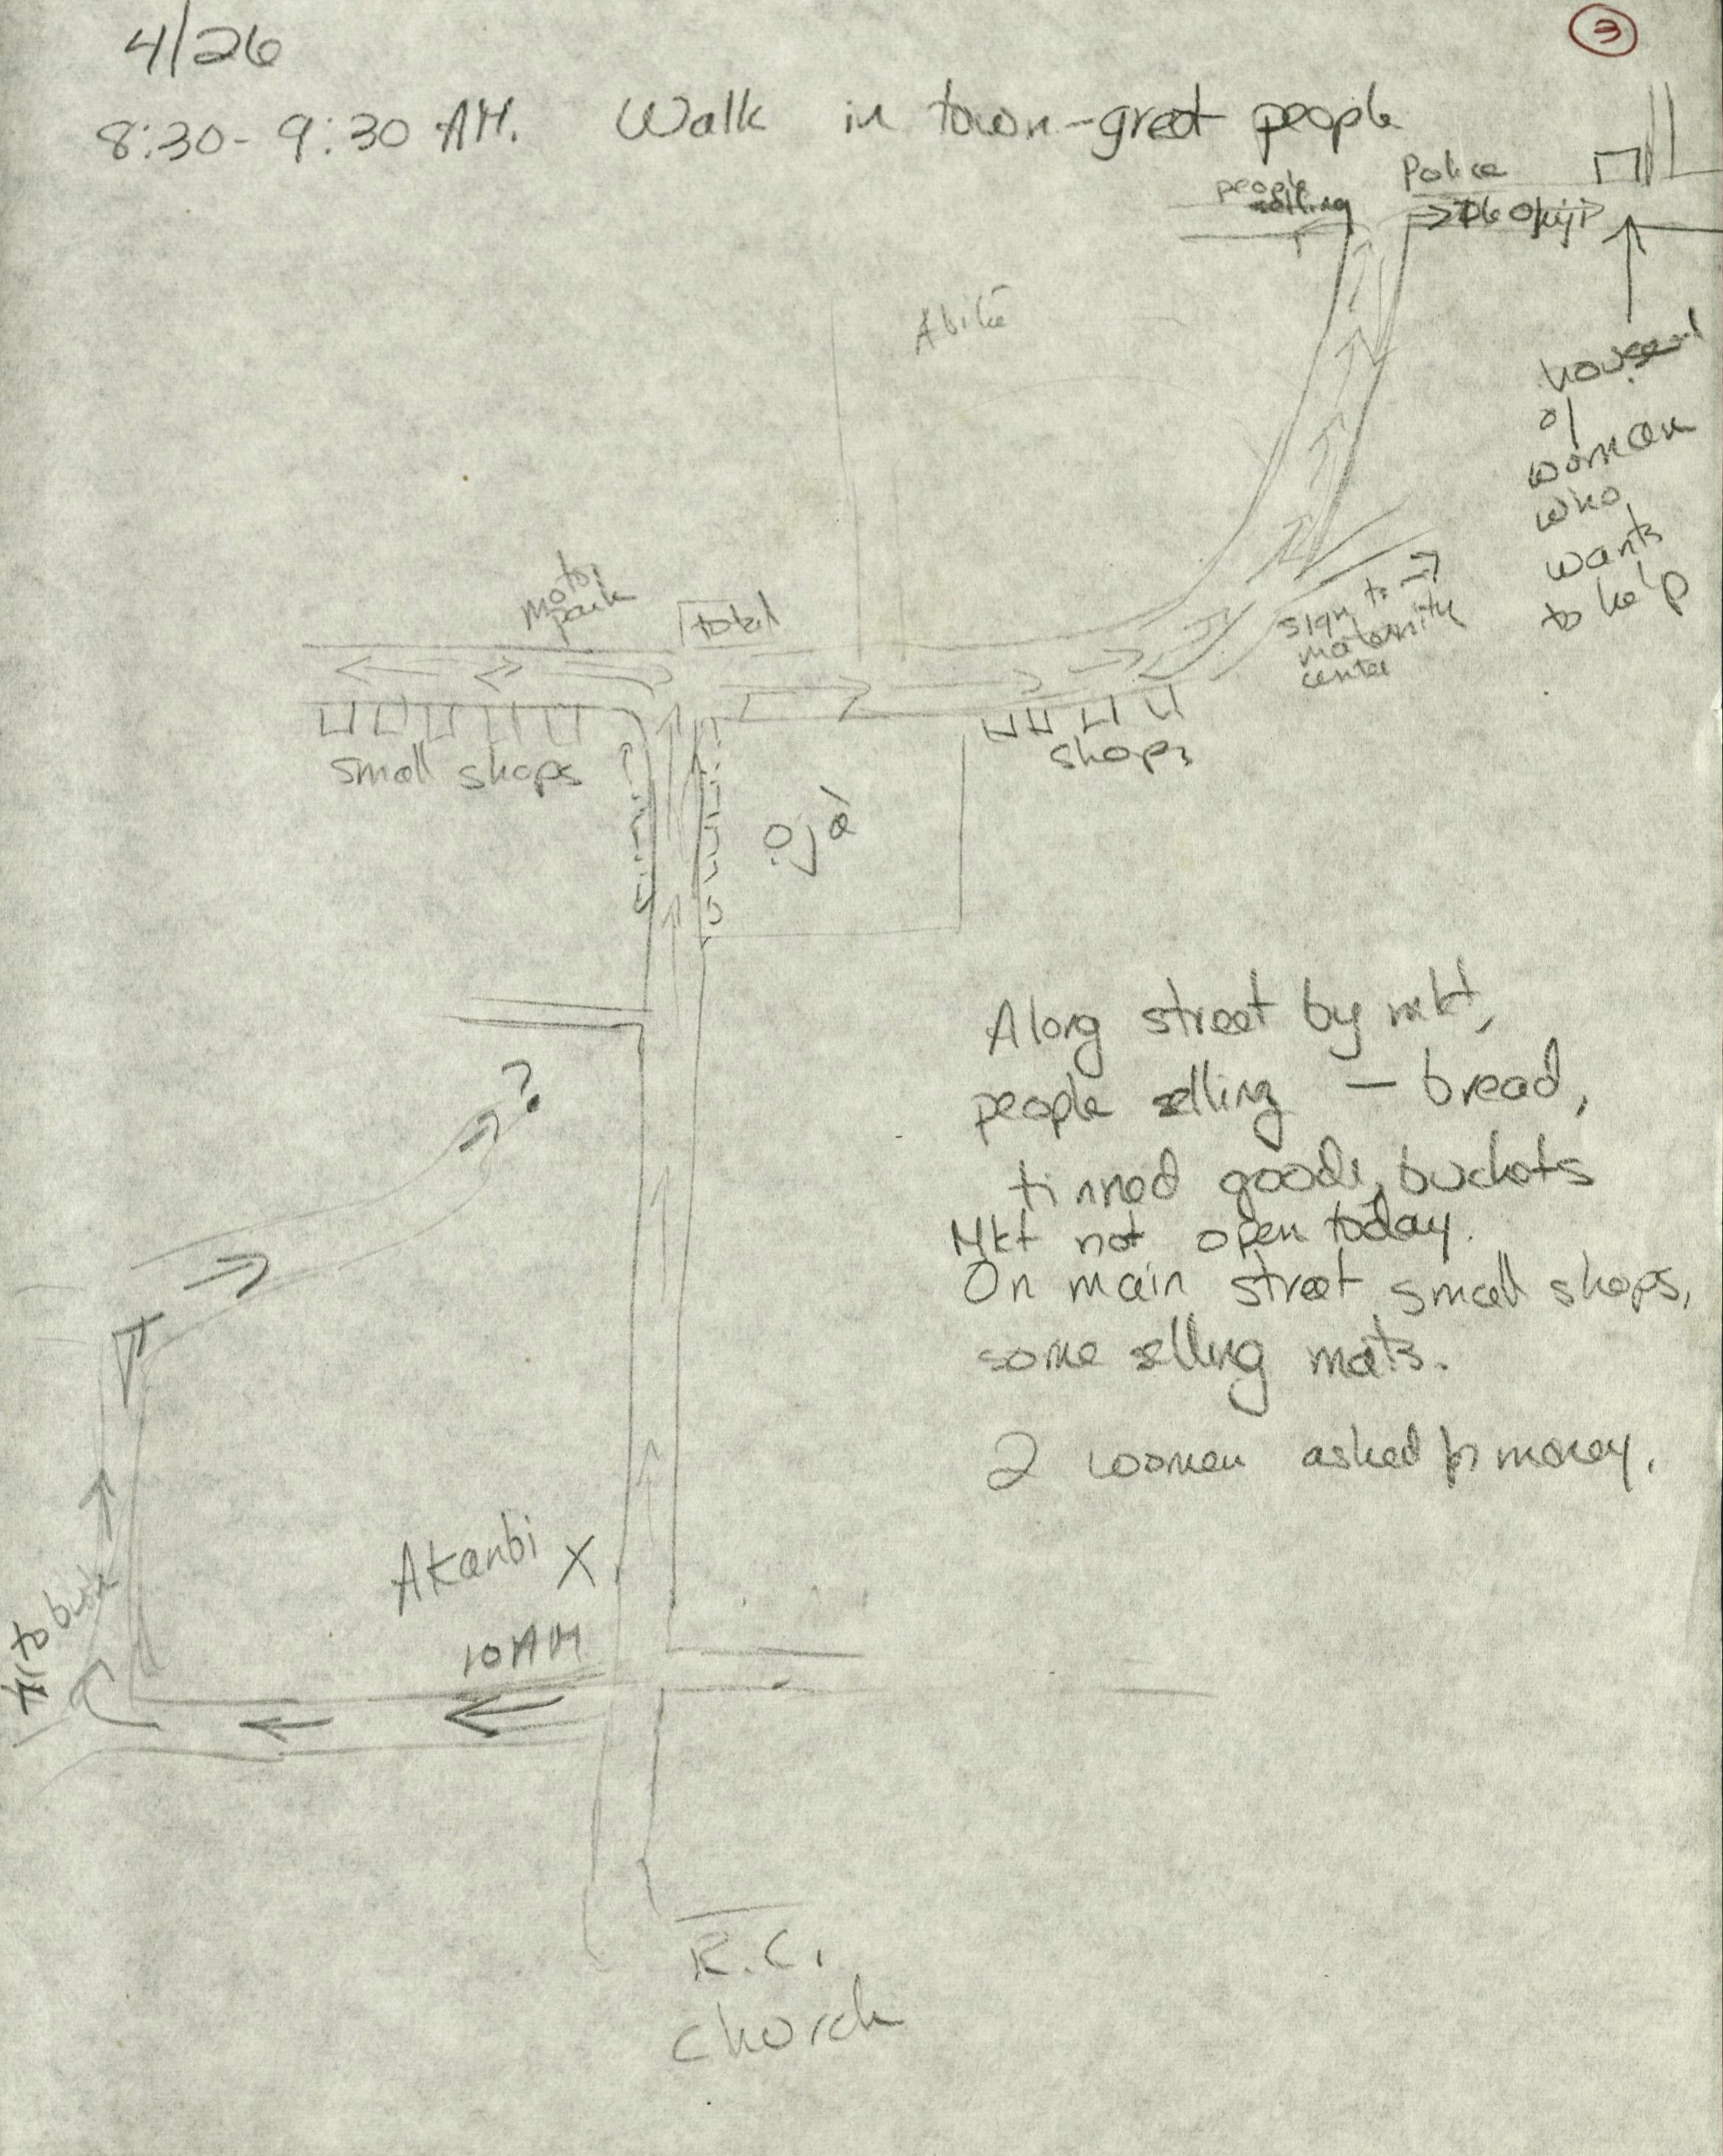 4/26
3
8:30-9:30 AM. Walk in town-greet people
people
selling
Police
house
of
woman
who
wants
to help
motor
park
total
sign to
maternity
center
small shops
shops
ọjà
Along street by mkt,
people selling — bread,
tinned goods, buckets
Mkt not open today.
On main street small shops,
some selling mats.
?
2 women asked for money.
Akanbi X
10 AM
to
R.C.
Church